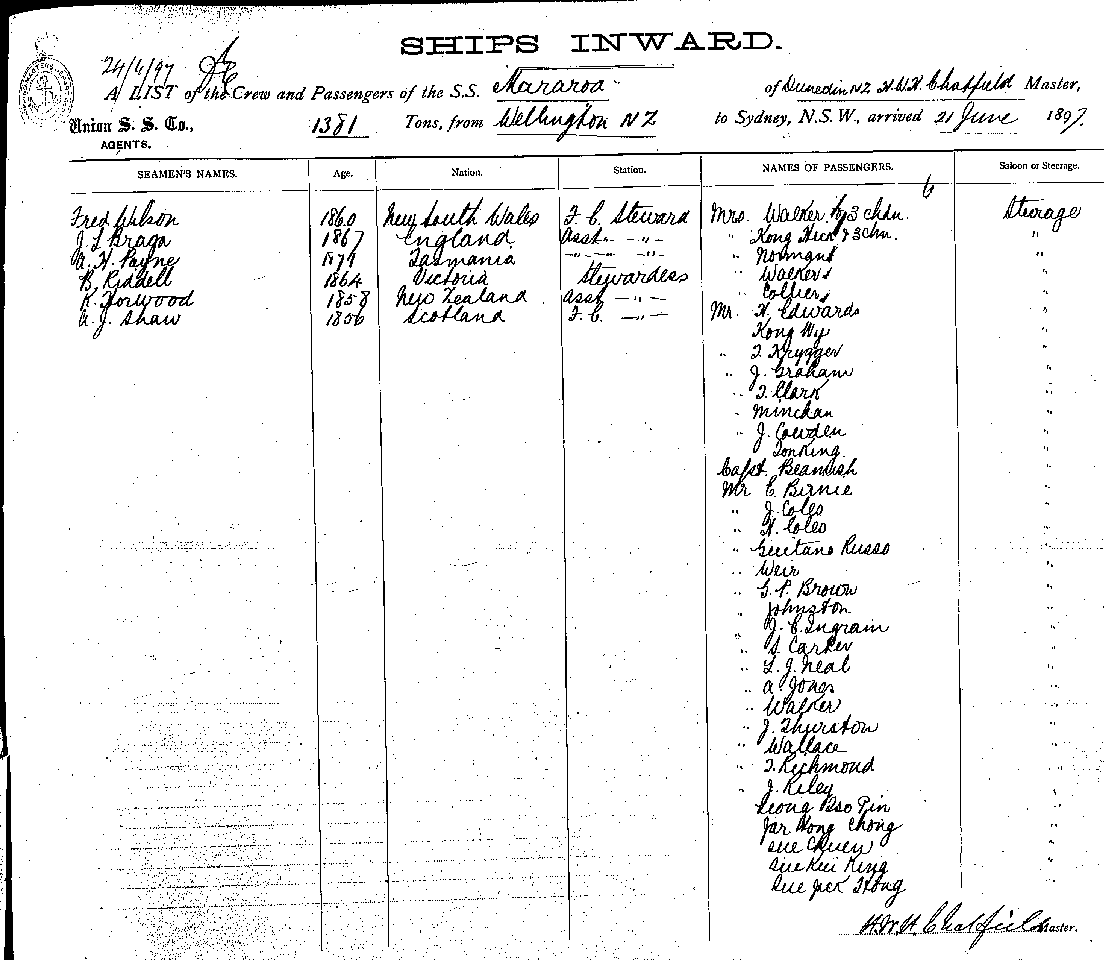 SHIPS INWARD.
24/6/97
A LIST of the Crew and Passengers of the S.S. Mararoa of Dunedin NZ H.W.H. Chatfield Master,
Union S. S. Co., 1381 Tons, from Wellington NZ to Sydney, N.S.W., arrived 21 June 1897.
AGENTS.
SEAMEN'S NAMES. Age. Nation. Station. NAMES OF PASSENGERS. Saloon or Steerage.
6
Fred Wilson 1860 New South Wales F. C. Steward Mrs. Walker & 3 chdn. Steerage
J. S. Kraga 1867 England Asst. — " — " Kong Hick & 3 chn. "
A. H. Payne 1874 Tasmania — " — — " — " Normans "
B. Riddell 1864 Victoria Stewardess " Walkers "
K. Horwood 1858 New Zealand Asst — " — " Colliers "
A. J. Shaw 1856 Scotland F. C. — " — Mr. H. Edwards "
Kong Wy "
" T. Krygger "
" J. Graham "
" T. Clark "
" Minchan "
" J. Cowden "
Tonking "
Capt. Beamish "
Mr E. Birnie "
" J. Coles "
" H. Coles "
" Guitano Russo "
" Weir "
" G. P. Brown "
" Johnston "
" J. C. Ingram "
" S. Carter "
" L. J. Neal "
" A. Jones "
" Walker "
" J. Thurston "
" Wallace "
" T. Richmond "
" J. Riley "
Leong Bso Pin "
Jar Wong Chong "
Sue Chuen "
Sue Kui King "
Sue Jack Hong "
H.W.H. Chatfield Master.